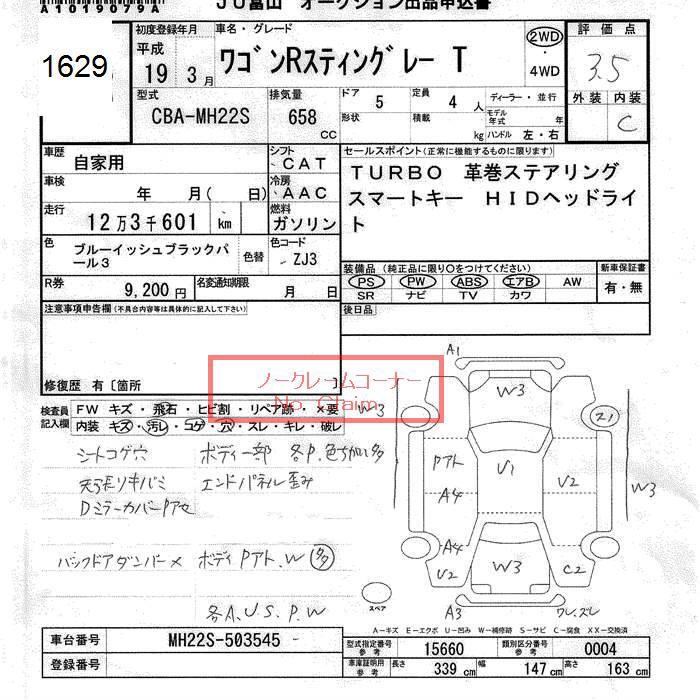 A10190790A JU富山 オークション出品申込書
1629
初度登録年月 平成 19 3月
車名・グレード ワゴンRスティングレー T
2WD・4WD
評価点 3.5
外装 内装 C
型式 CBA-MH22S
排気量 658 CC
ドア 5 形状
定員 4 人 積載 kg
ディーラー・並行
モデル年式 年
ハンドル 左・右
車歴 自家用
シフト CAT
車検 年 月( 日)
冷房 AAC
走行 12万3千601 km
燃料 ガソリン
色 ブルーイッシュブラックパール3 色替
色コード ZJ3
R券 9,200円
名変通知期限 月 日
セールスポイント(正常に機能するものに限ります)
TURBO 革巻ステアリング
スマートキー HIDヘッドライ
ト
装備品(純正品に限り○をつけてください)
新車保証書 有・無
PS PW ABS エアB AW
SR ナビ TV カワ
後日品
注意事項申告欄(不具合内容等は具体的に記入して下さい)
修復歴 有〔箇所 〕
ノークレームコーナー
No Claim
検査員記入欄
FW キズ・飛石・ヒビ割・リペア跡・×要
内装 キズ・汚レ・コゲ・穴・スレ・キレ・破レ
シートコゲ穴 ボディ一部 各P.色ちがい多
天張りキバミ エンドパネル歪み
DミラーカバーPアセ
バックドアダンパー× ボディPアト.W 多
各A.U.S.P.W
A1
W3 W3 S1
Pアト U1 U2 W3
A4
A4
U2 W3 C2
スペア A3 ワレ,ズレ
A−キズ E−エクボ U−凹み W−補修跡 S−サビ C−腐食 XX−交換済
車台番号 MH22S-503545
登録番号
型式指定番号 参考 15660 類別区分番号 参考 0004
車庫証明用 参考 長さ 339 cm 幅 147 cm 高さ 163 cm